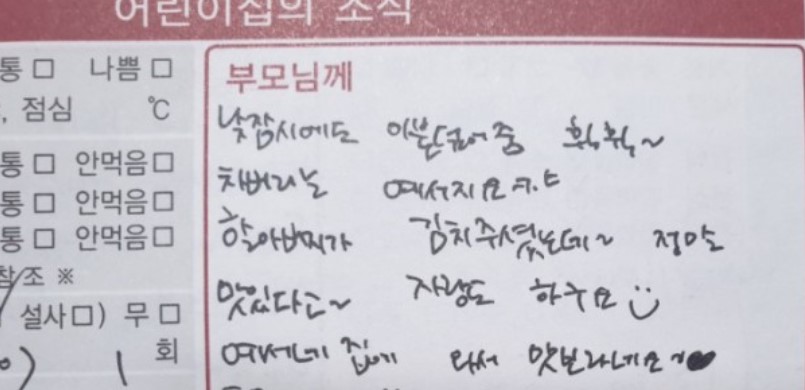 어린이집의 소식
통 □ 나쁨 □
점심 ℃
통 □ 안먹음 □
통 □ 안먹음 □
통 □ 안먹음 □
참조 ※
설사 □) 무 □
회
부모님께
낮잠시에도 이불덮어줌 휙휙~
차버리는 예서지요ㅋㅑ
할아버지가 김치주셨는데~ 정말
맛있다고~ 자랑도 하구요
예서네 집에 와서 맛보라네요~